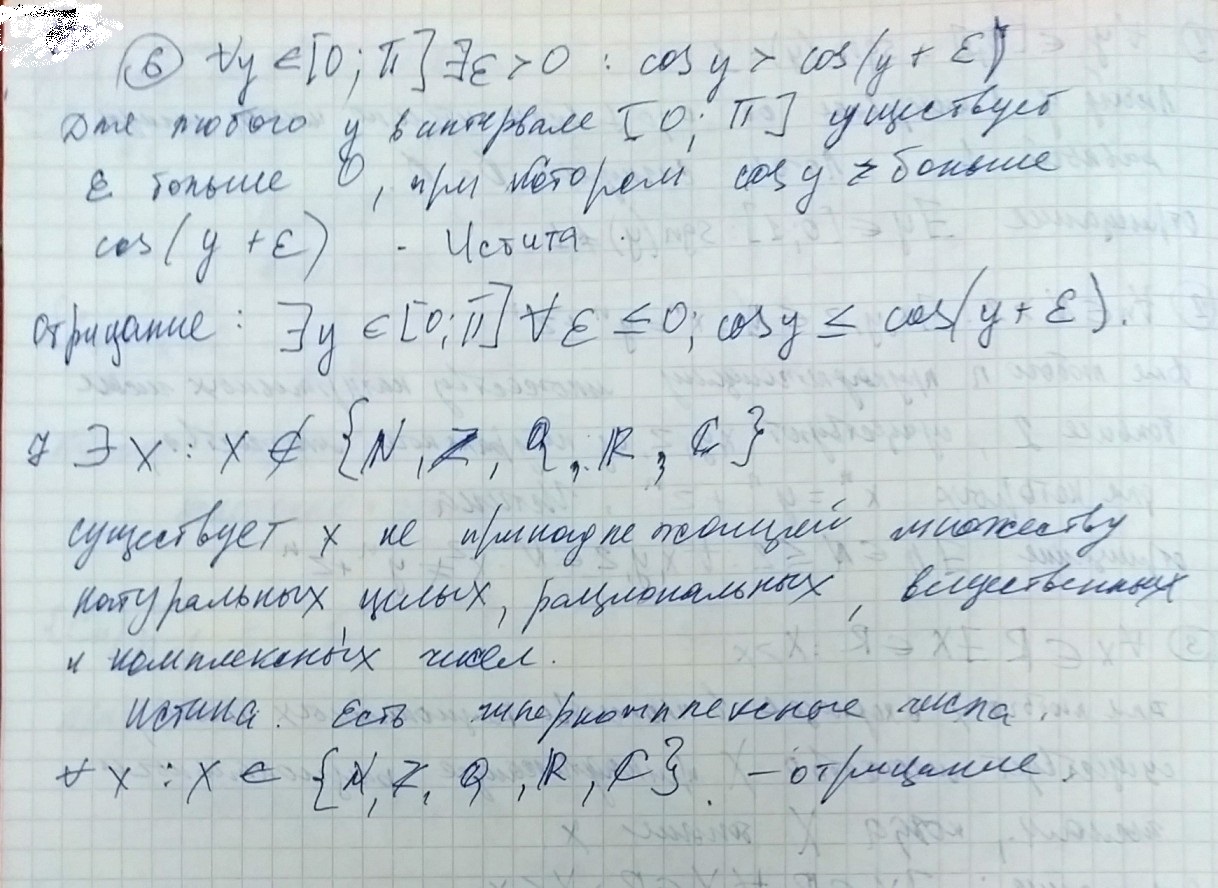 ⑥ ∀y ∈ [0; π] ∃ε > 0 : cos y > cos(y + ε)
Для любого y в интервале [0; π] уществует
ε больше 0, при котором cos y больше
cos(y + ε) - Истита.
Отрицание: ∃y ∈ [0; π] ∀ε ≤ 0; cos y ≤ cos(y + ε).
7 ∃x : x ∉ {N, Z, Q, R, C}
существует x не принадлежащей множеству
натуральных, целых, рациональных, вещественных
и комплексных чисел.
Истина. Есть гиперкомплексные числа.
∀x : x ∈ {N, Z, Q, R, C}. - отрицание.